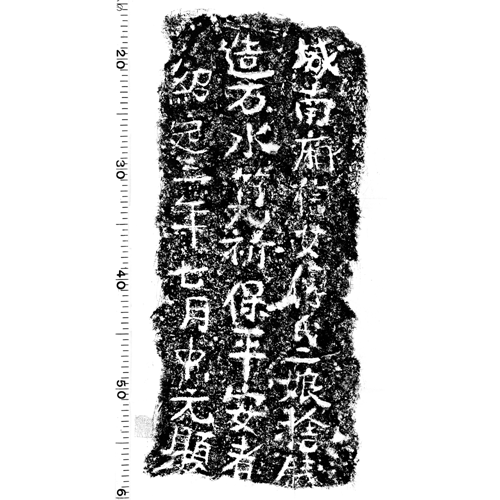 城南廂信女何氏二娘捨錢
造水祈保平安者
紹定二年七月中元題
20
30
40
50
6